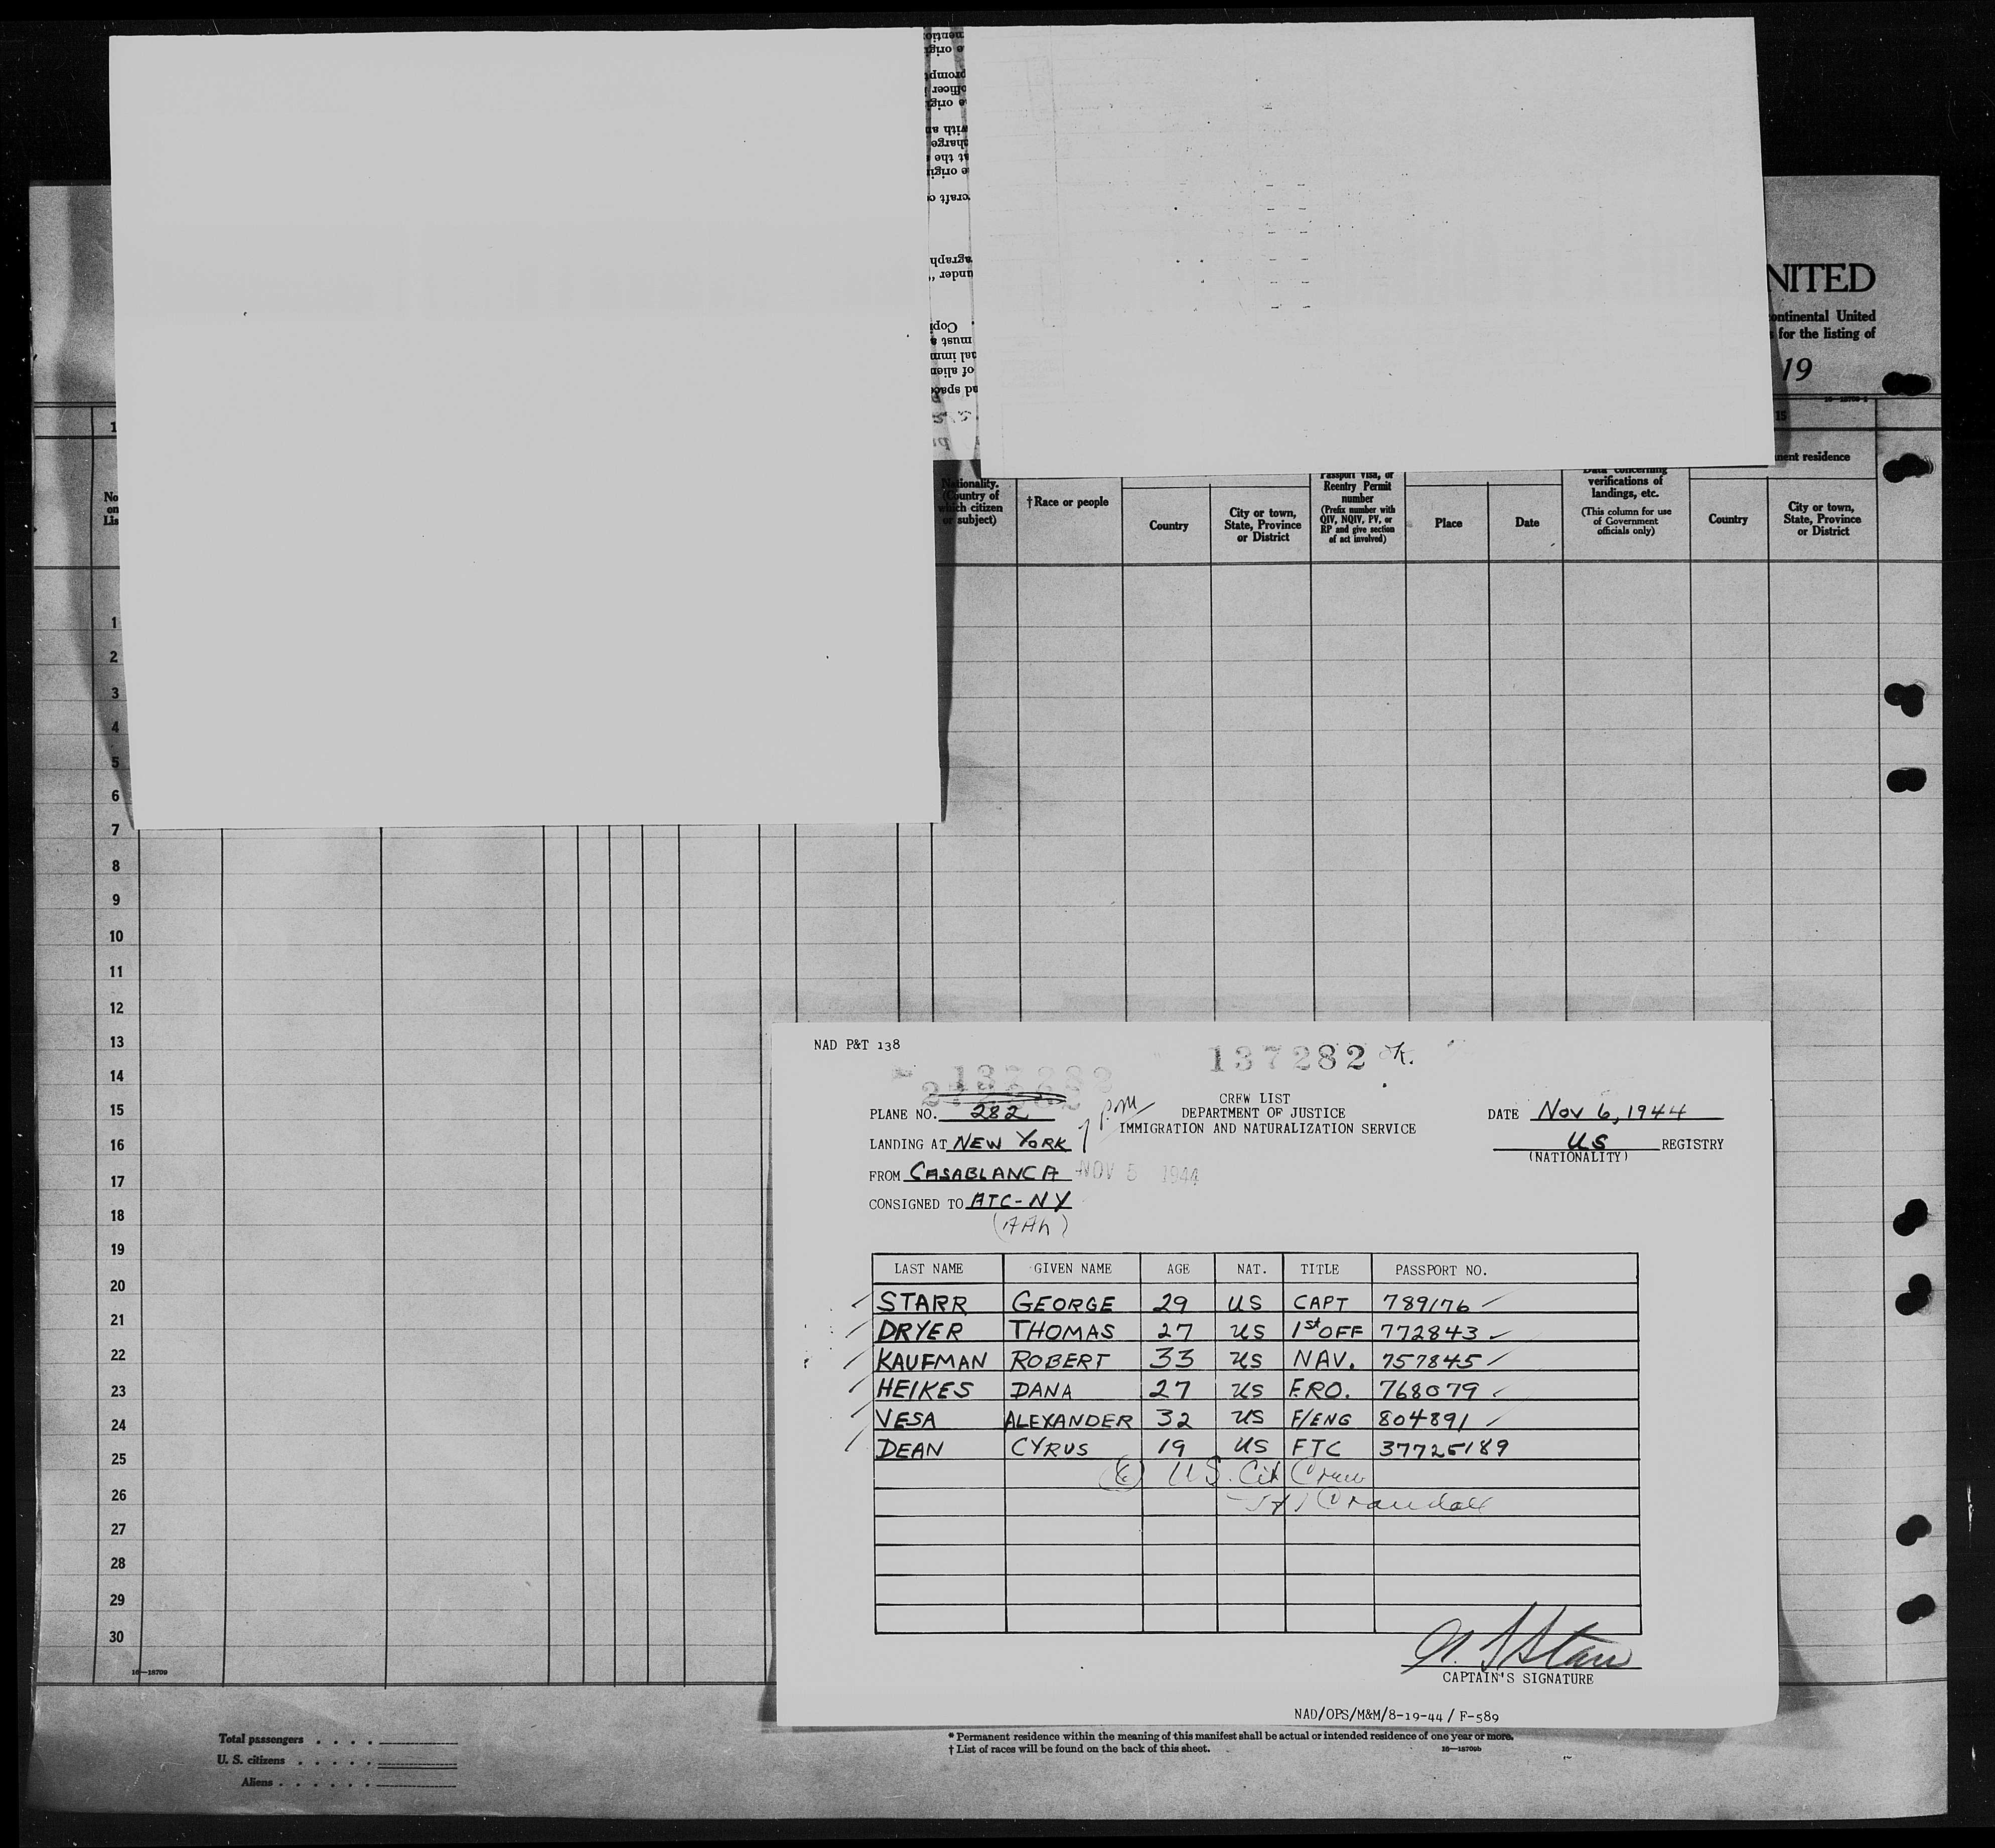 NITED
ontinental United
for the listing of
19
15
nent residence
No
on
Lis
Nationality.
(Country of
which citizen
or subject)
†Race or people
Country
City or town,
State, Province
or District
Passport visa, or
Reentry Permit
number
(Prefix number with
QIV, NQIV, PV, or
RP and give section
of act involved)
Place
Date
Data concerning
verifications of
landings, etc.
(This column for use
of Government
officials only)
Country
City or town,
State, Province
or District
1
2
3
4
5
6
7
8
9
10
11
12
13
14
15
16
17
18
19
20
21
22
23
24
25
26
27
28
29
30
16—18709
NAD P&T 138
137282 OK.
PLANE NO. 282
CREW LIST
DEPARTMENT OF JUSTICE
IMMIGRATION AND NATURALIZATION SERVICE
DATE Nov 6, 1944
LANDING AT NEW YORK
US REGISTRY
(NATIONALITY)
FROM CASABLANCA NOV 5 1944
CONSIGNED TO ATC-NY
LAST NAME GIVEN NAME AGE NAT. TITLE PASSPORT NO.
STARR GEORGE 29 US CAPT 789176
DRYER THOMAS 27 US 1st OFF 772843
KAUFMAN ROBERT 33 US NAV. 757845
HEIKES DANA 27 US F.RO. 768079
VESA ALEXANDER 32 US F/ENG 804891
DEAN CYRUS 19 US FTC 37725189
(6) U.S. Cit Crew
Crandall
CAPTAIN'S SIGNATURE
NAD/OPS/M&M/8-19-44 / F-589
Total passengers . . . .
U. S. citizens . . . . .
Aliens . . . . . .
* Permanent residence within the meaning of this manifest shall be actual or intended residence of one year or more.
† List of races will be found on the back of this sheet.
16—18709b